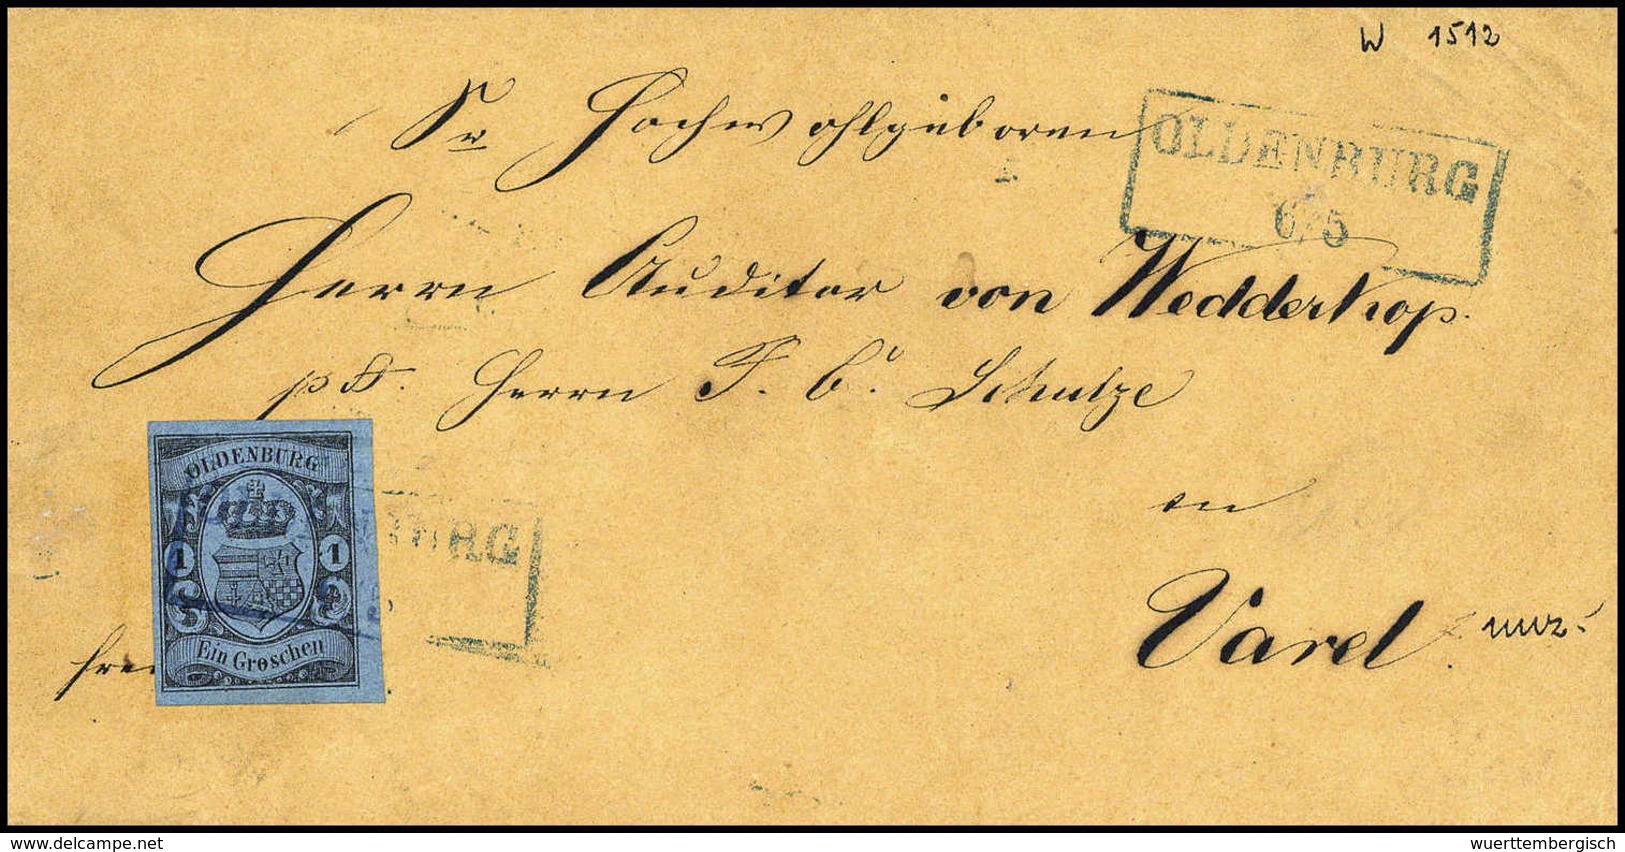 W 1512
Sr Hochwohlgeboren
OLDENBURG
6/5
Herrn Auditor von Wedderkop.
Herrn F. C. Schulze
in
Varel
OLDENBURG
1 1
Ein Groschen
BURG
fre
delcampe.net
wuerttembergisch